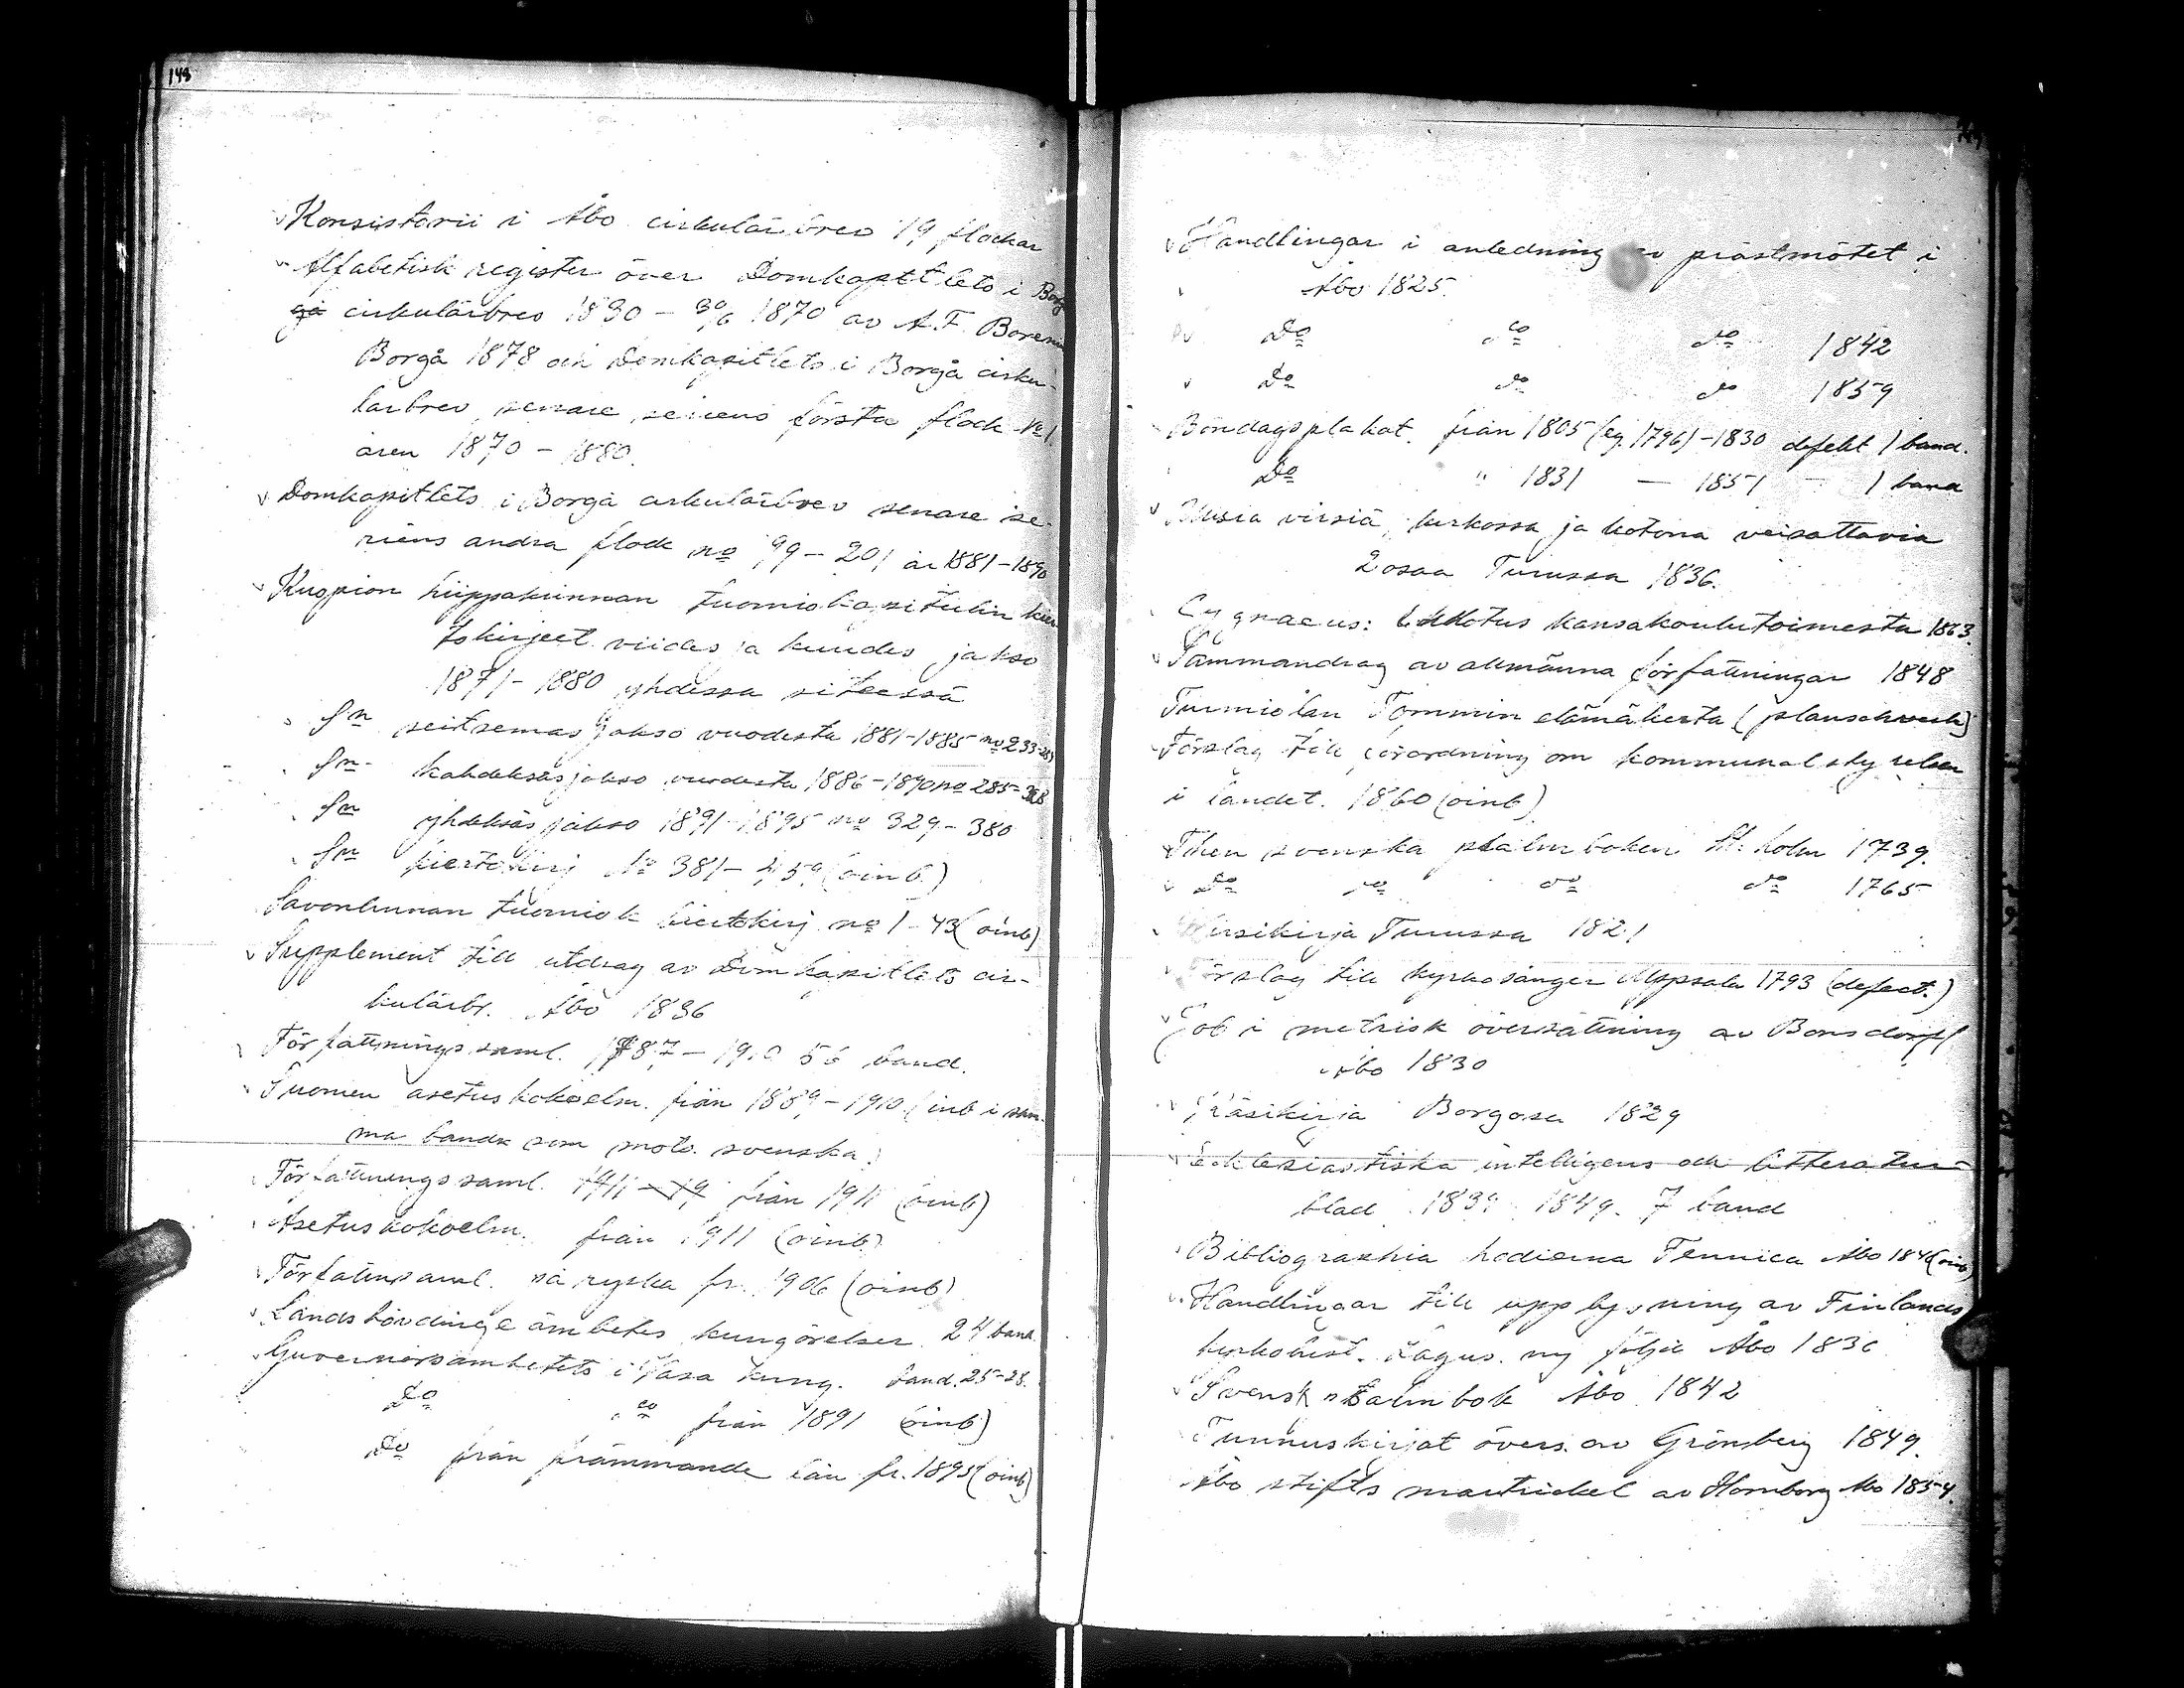 148
Konsistorii i Åbo cirkulärbrev 19 flockar
Alfabetisk register över Domkapitlets i Bor
gå cirkulärbrev 1830 - 30/6 1870 av A.F. Boren
Borgå 1878 och Domkapitlets i Borgå cirku-
lärbrev senare seriens första flock No 1
åren 1870 - 1880.
Domkapitlets i Borgå cirkulärbrev senare se-
riens andra flock no 99 - 201 år 1881-1890
Kuopion hiippakunnan tuomiokapitulin kier
tokirjeet viides ja kuudes jakso
1871 - 1880 yhdessa siteessä
Sn seitsemas jakso vuodesta 1881-1885 no 233-
Sn kahdeksäs jakso vuodesta 1886-1890 no 285-328
Sn yhdeksäs jakso 1891-1895 no 329-380
Sn kiertokirj No 381-459 (oinb.)
Savonlinnan tuomiok kiertokirj no 1-43 (oinb)
Supplement till utdrag av Domkapitlets cir-
kulärbr. Åbo 1836
Författningssaml. 1787 - 1910 56 band.
Suomen asetuskokoelm. från 1889 - 1910 (inb i sam-
ma bands som mots. svenska)
Författningssaml. 1911 - 19 från 1911 (oinb)
Asetuskokoelm. från 1911 (oinb)
Författnsaml. på ryska fr. 1906 (oinb)
Landshövdinge ämbetes kungörelser 24 band
Guvernörsämbetets i Vasa kung. band. 25-28.
Do do från 1891 (oinb)
Do från främmande län fr. 1895 (oinb)
Handlingar i anledning av prästmötet i
Åbo 1825.
Do do do 1842
Do do do 1859
Böndagsplakat från 1805 (eg. 1796) - 1830 defekt 1 band.
Do " 1831 - 1851 - 1 band
Uusia virsiä, kirkossa ja kotona veisattavia
2 osaa Turussa 1836.
Cygnaeus: Ehdotus kansakoulutoimesta 1863.
Sammandrag av allmänna författningar 1848
Turmiolan Tommin elämäkerta (planschverk)
Förslag till förordning om kommunalstyrelsen
i landet. 1860 (oinb)
Then svenska psalmboken St:holm 1739.
Do do do do 1765
Virsikirja Turussa 1821
Förslag till kyrkosånger Uppsala 1793 (defect.)
Job i metrisk översättning av Bonsdorff
Åbo 1830
Käsikirja Borgosa 1829
Ecklesiastiska intelligens och litteratur-
blad 1839 1849. 7 band
Bibliographia hodierna Fennica Åbo 1846 (oinb)
Handlingar till upplysning av Finlands
kyrkohist. Lagus. ny följd Åbo 1836
Svensk Psalmbok Åbo 1842
Tunnuskirjat övers. av Grönberg 1849.
Åbo stifts matrickel av Hornborg Åbo 1854.